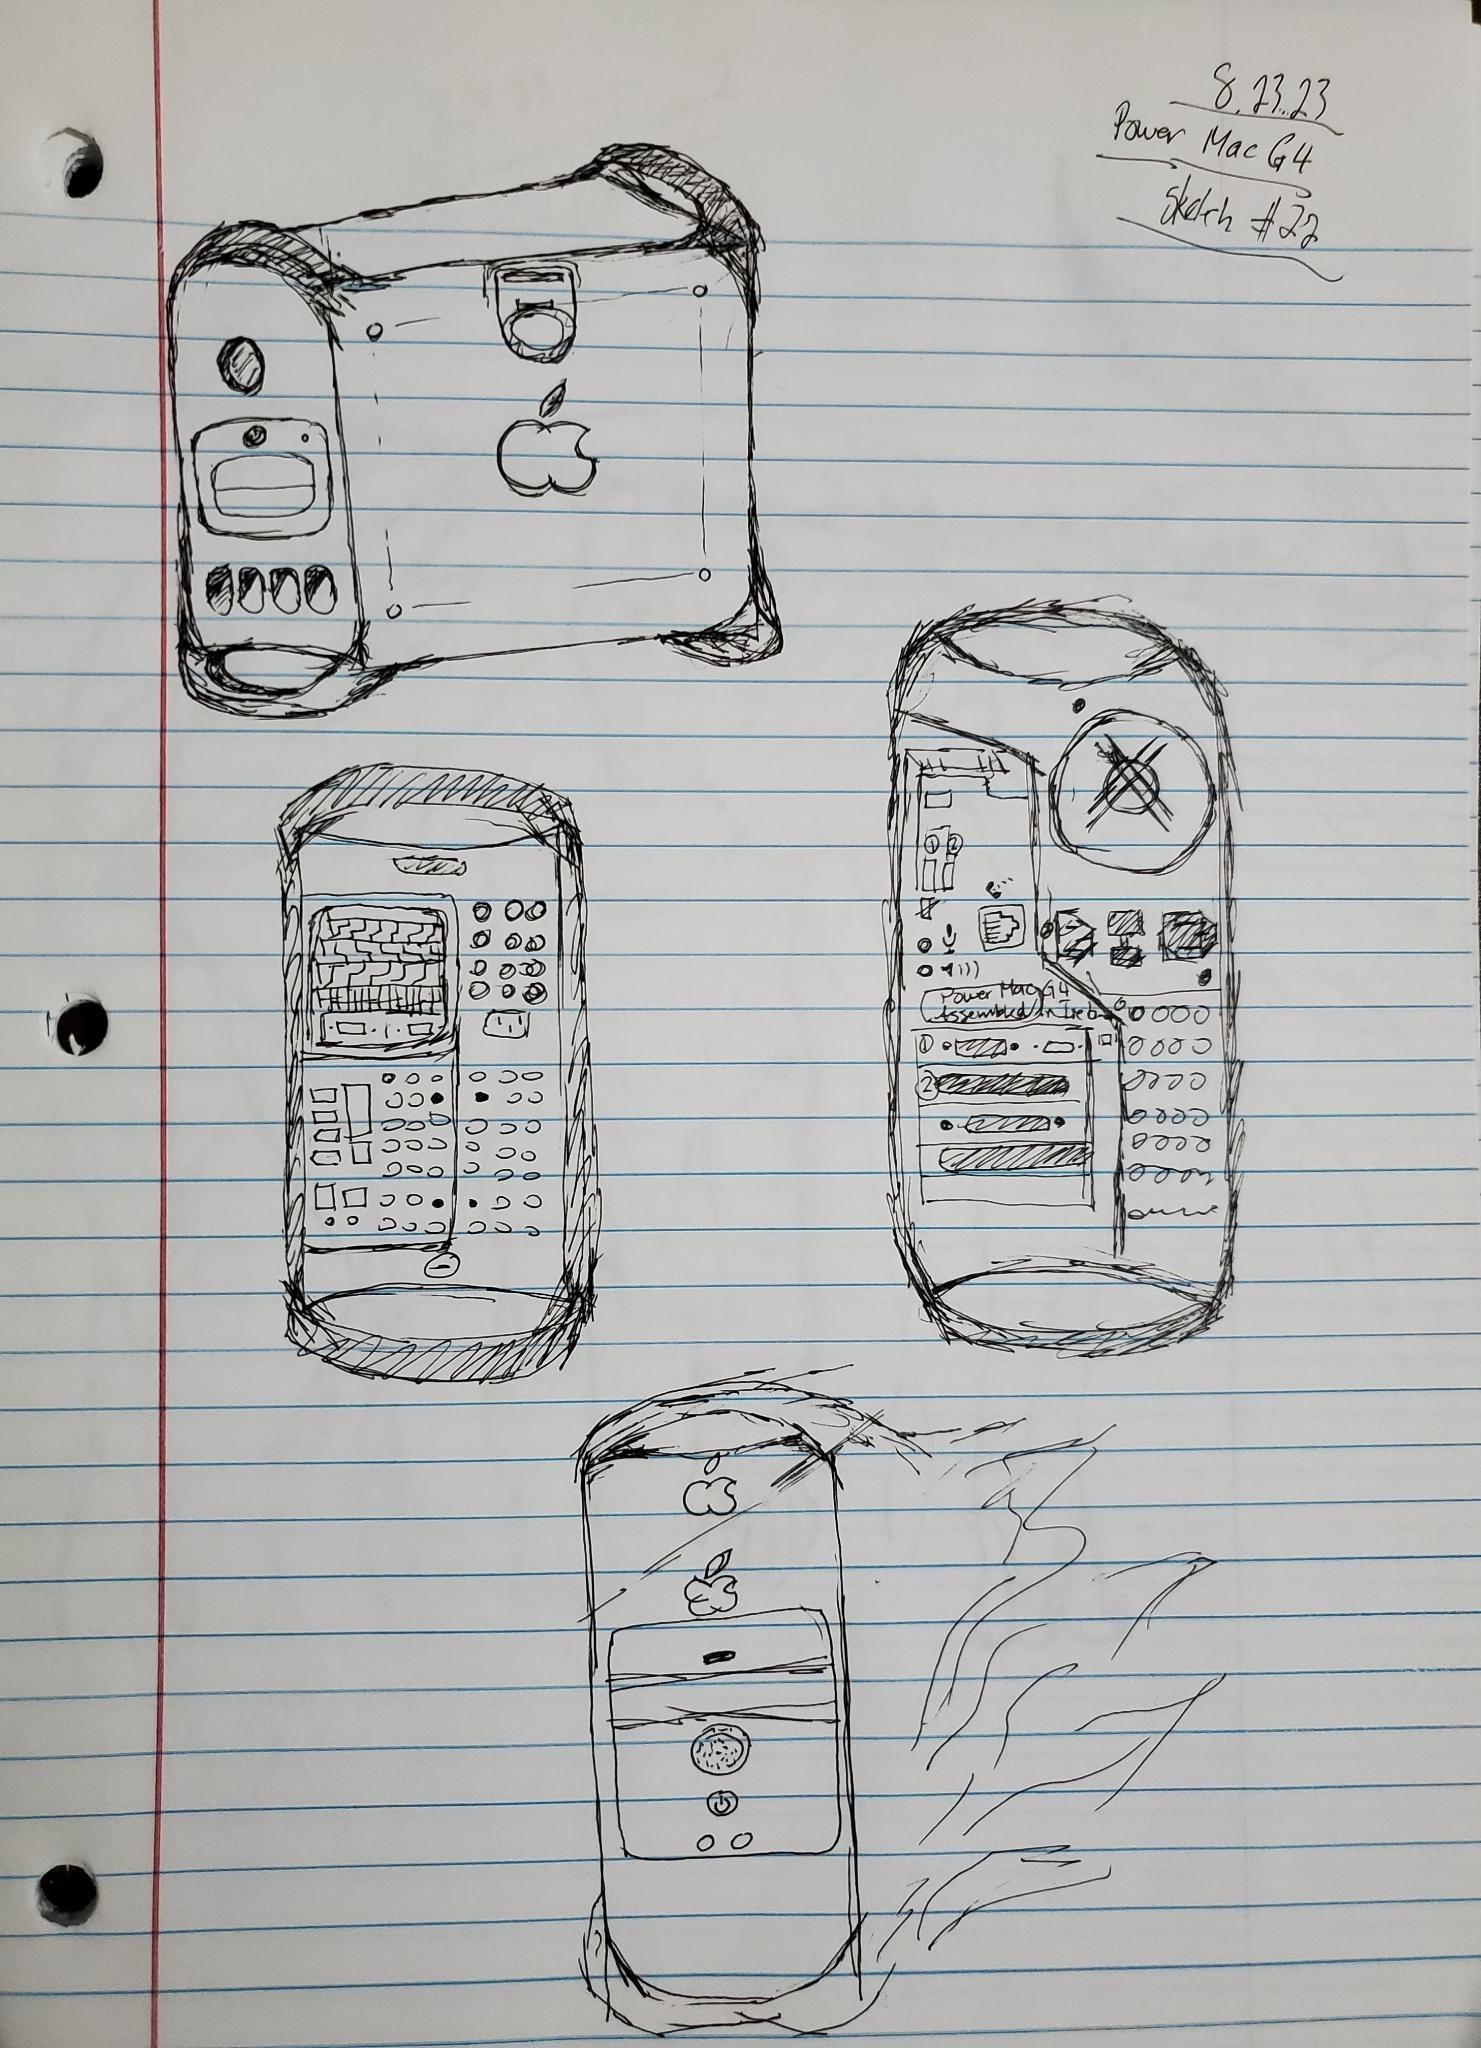 8.23.23
Power Mac G4
Sketch #22
1 2
Power Mac G4
Assembled in
1
2